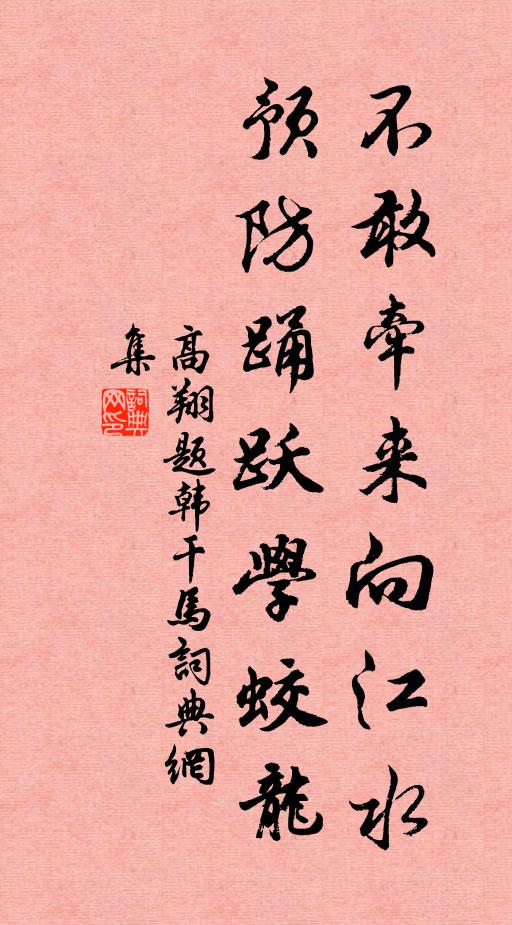 不敢牵来向江水
预防踊跃学蛟龙
高翔题韩干马词典网
集
词典网印